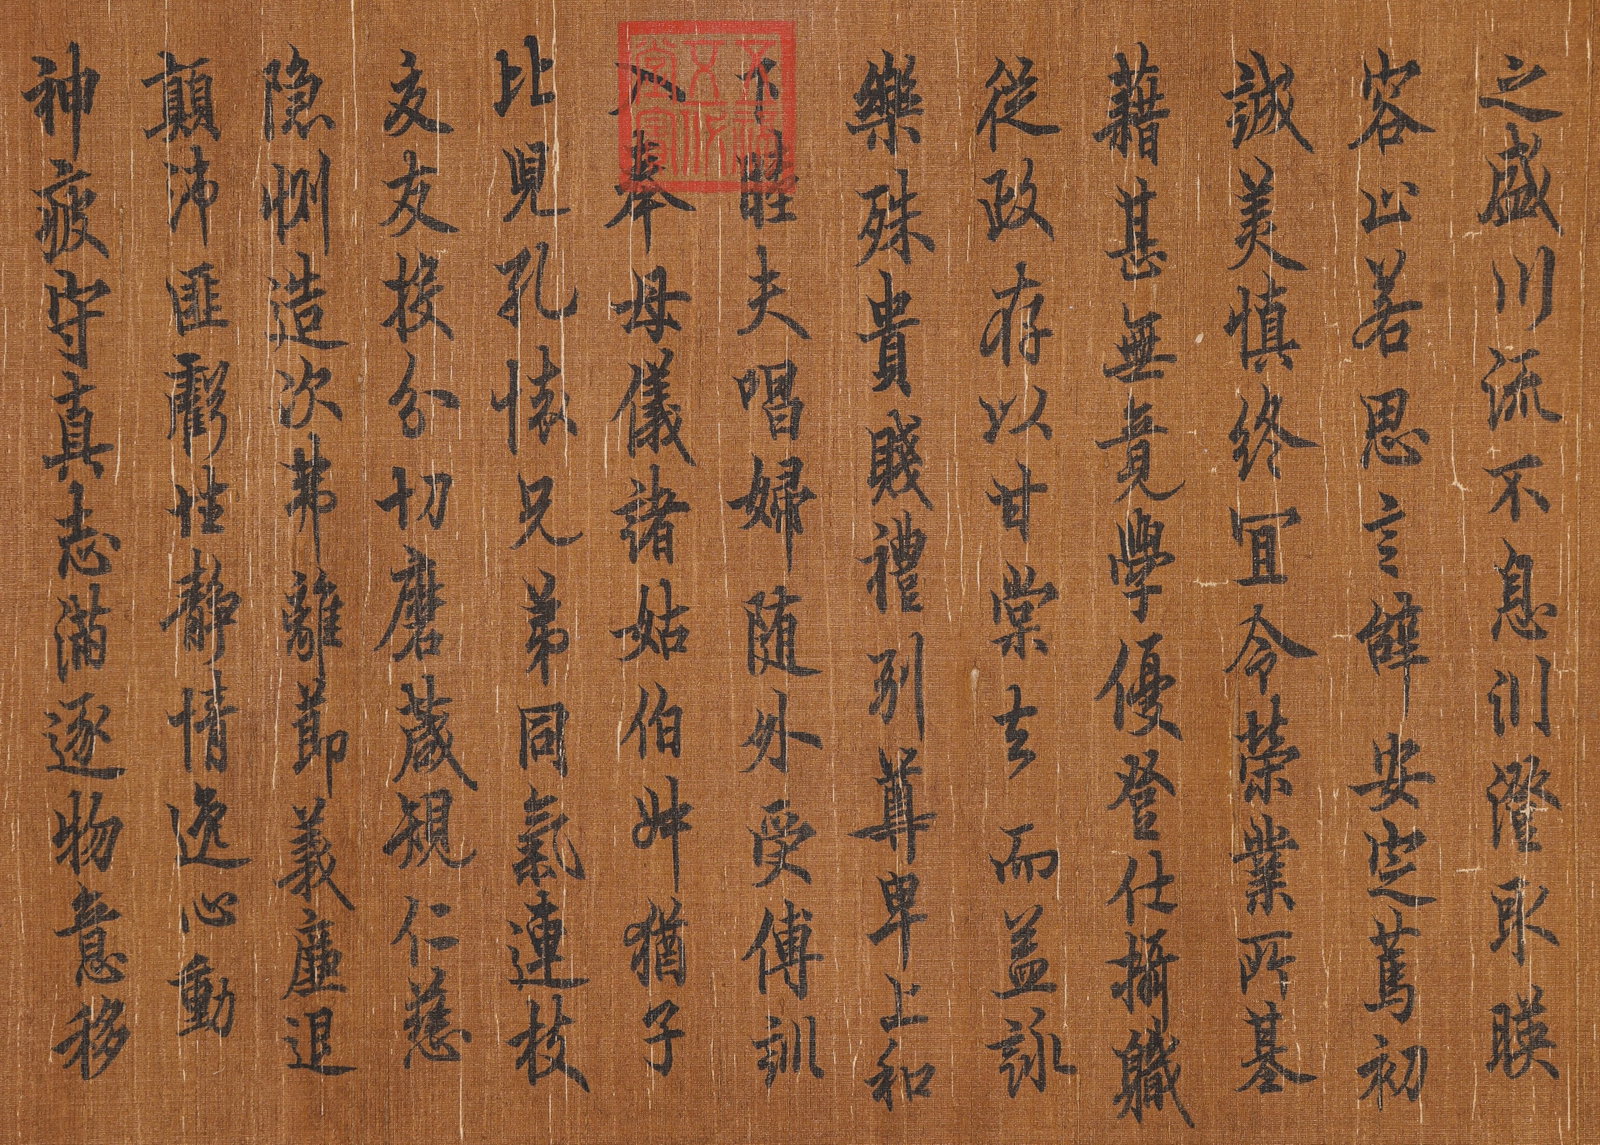 之盛川流不息川澄取暎
容止若思言辭安定萬初
誠美慎終宜令榮業所基
藉甚無竟學優登仕攝職
從政存以甘棠去而益詠
樂殊貴賤禮别尊卑上和
下睦夫唱婦随外受傅訓
入奉母儀諸姑伯叔猶子
比兒孔懐兄弟同氣連枝
交友投分切磨葴規仁慈
隐惻造次弗離節義廉退
顛沛匪虧性靜情逸心動
神疲守真志滿逐物意移